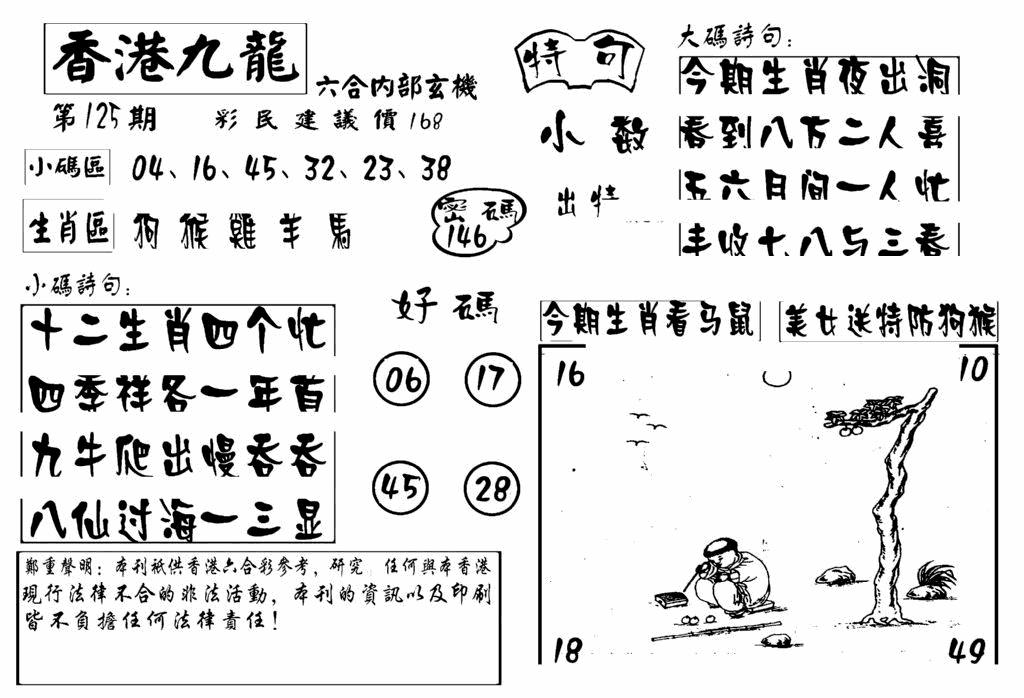 香港九龍
六合内部玄機
第125期 彩民建議價168
小碼區 04、16、45、32、23、38
生肖區 狗猴雞羊馬
密碼
146
小碼詩句:
十二生肖四个忙
四季祥各一年首
九牛爬出慢吞吞
八仙过海一三显
好碼
06 17
45 28
鄭重聲明:本刊衹供香港六合彩參考,研究 任何與本香港
現行法律不合的非法活動,本刊的資訊以及印刷
皆不負擔任何法律責任!
特句
小数
出特
大碼詩句:
今期生肖夜出洞
看到八方二人喜
五六日间一人忙
丰收十八与三春
今期生肖看马鼠
美女送特防狗猴
16 10
18 49